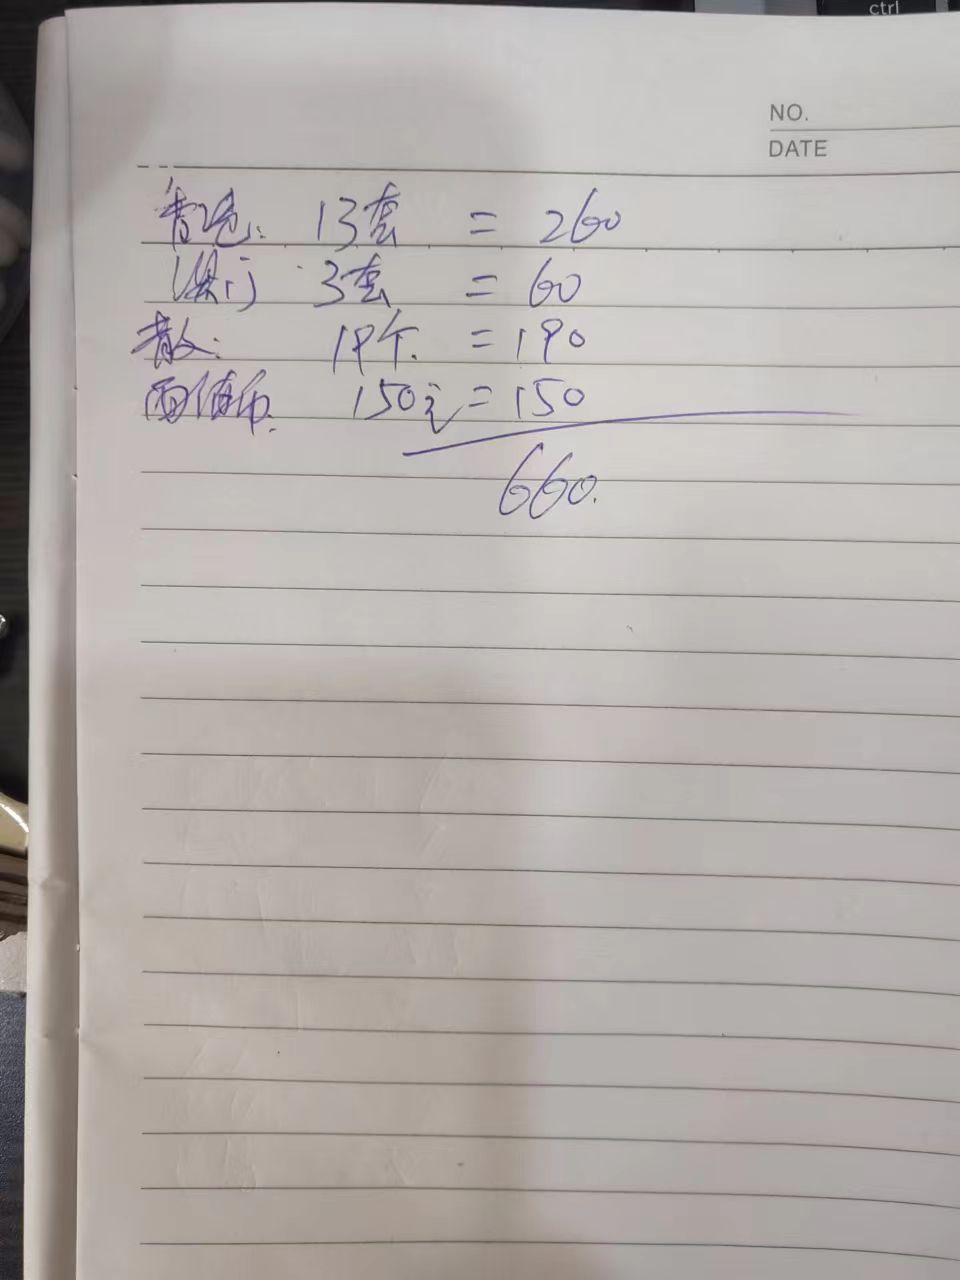 ctrl
NO.
DATE
香港: 13套 = 260
澳门 3套 = 60
散: 19个. = 190
面值币. 150元 = 150
660.